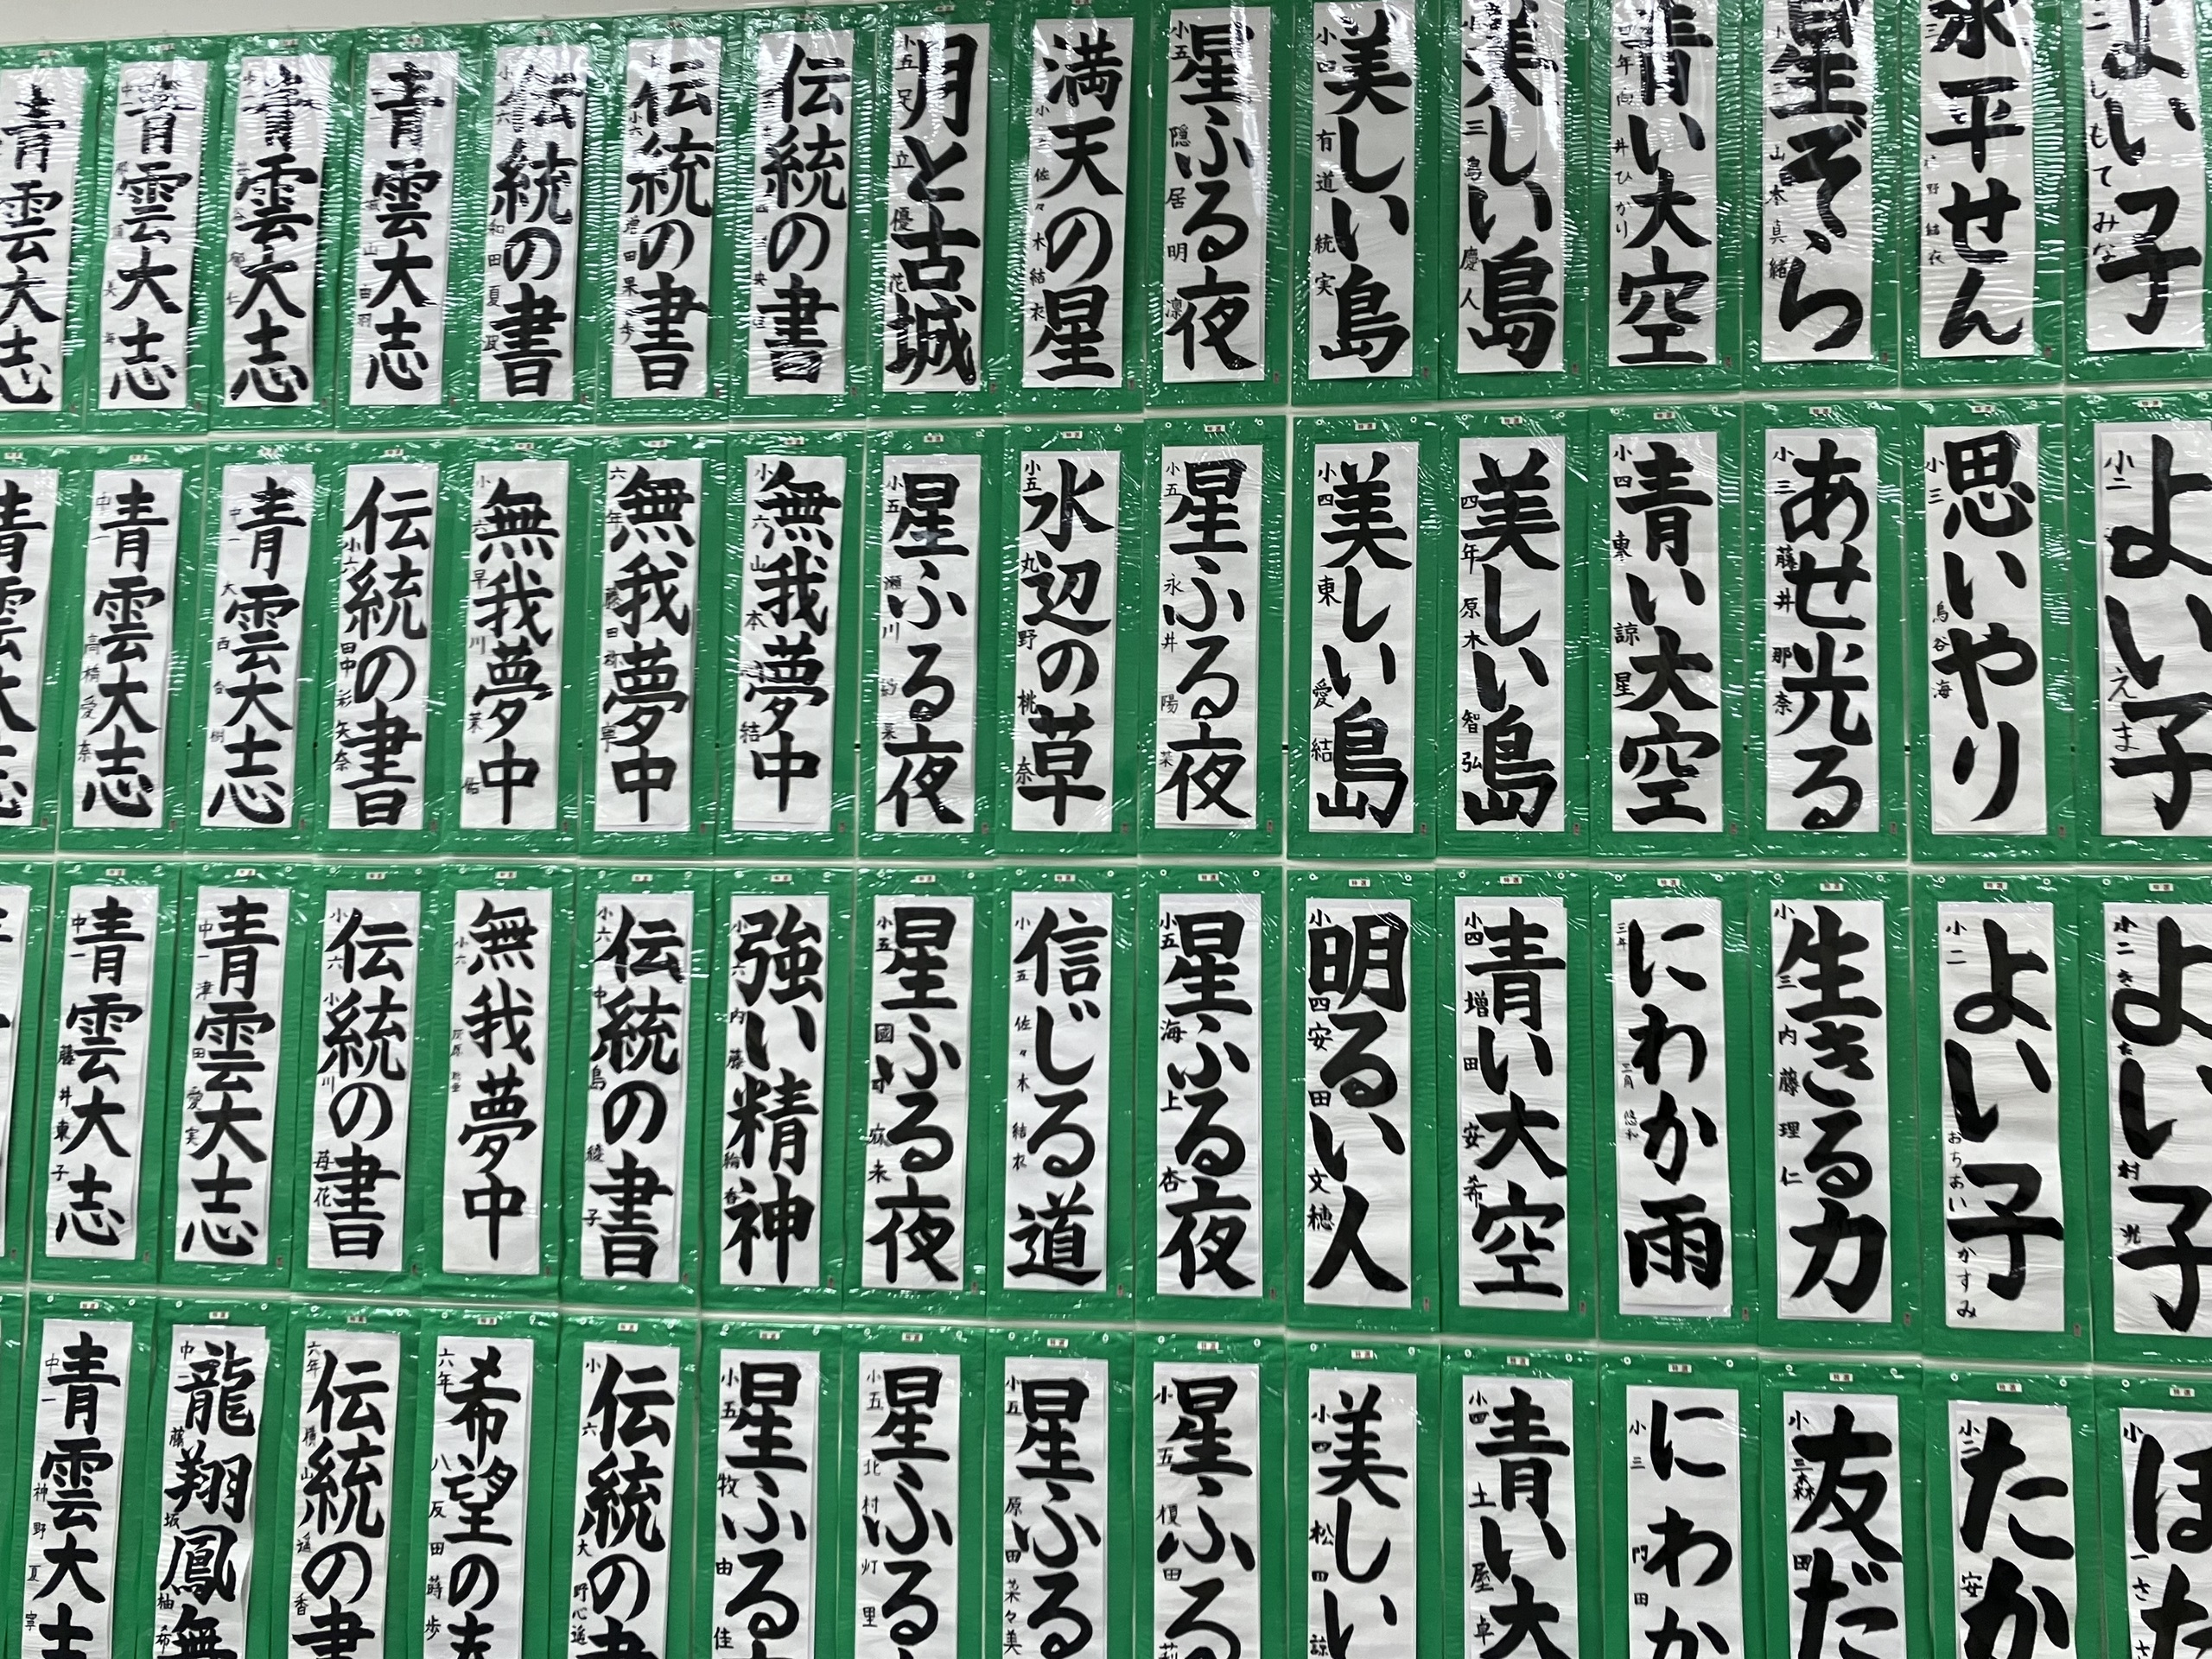 よい子
水平せん
星ぞら
山本真緒
青い大空
美しい島
美しい島
小四 有道統実
星ふる夜
小五 隠居明凛
満天の星
佐々木結衣
月と古城
小五 足立優花
伝統の書
伝統の書
小六 増田果歩
伝統の書
青雲大志
青雲大志
青雲大志
青雲大志
よい子
小二 えま
思いやり
小三 鳥谷海
あせ光る
小三 藤井那奈
青い大空
小四 東諒星
美しい島
四年 原木智弘
美しい島
小四 東愛結
星ふる夜
小五 永井陽菜
水辺の草
小五 丸野桃奈
星ふる夜
小五
無我夢中
小六 山本結
無我夢中
六年
無我夢中
小六 早川
伝統の書
小六 田中彩矢奈
青雲大志
中一
青雲大志
中一 高橋愛奈
青雲大志
よい子
小二
よい子
小二 おちあいかすみ
生きる力
小三 内藤理仁
にわか雨
三年 三角悠和
青い大空
小四 増田安希
明るい人
小四 安田文穂
星ふる夜
小五 海上杏
信じる道
小五 佐々木結衣
星ふる夜
小五
強い精神
小六
伝統の書
小六 中島綾子
無我夢中
小六
伝統の書
小六 小川苺花
青雲大志
中一 津田愛実
青雲大志
中一 藤井東子
小
たか
小二 安
友だ
小三 森田
にわか
小三 門田
青い大
小四 土屋卓
美しい
小四 松田諒
星ふる
小五 榎田
星ふる
小五 原田菜々美
星ふる
小五 北村灯里
星ふる
小五 牧由佳
伝統の
小六 大野心遥
希望の
六年 八反田蒔歩
伝統の書
六年 横山遥香
龍翔鳳
中一 藤坂柚希
青雲大
中一 神野夏寧